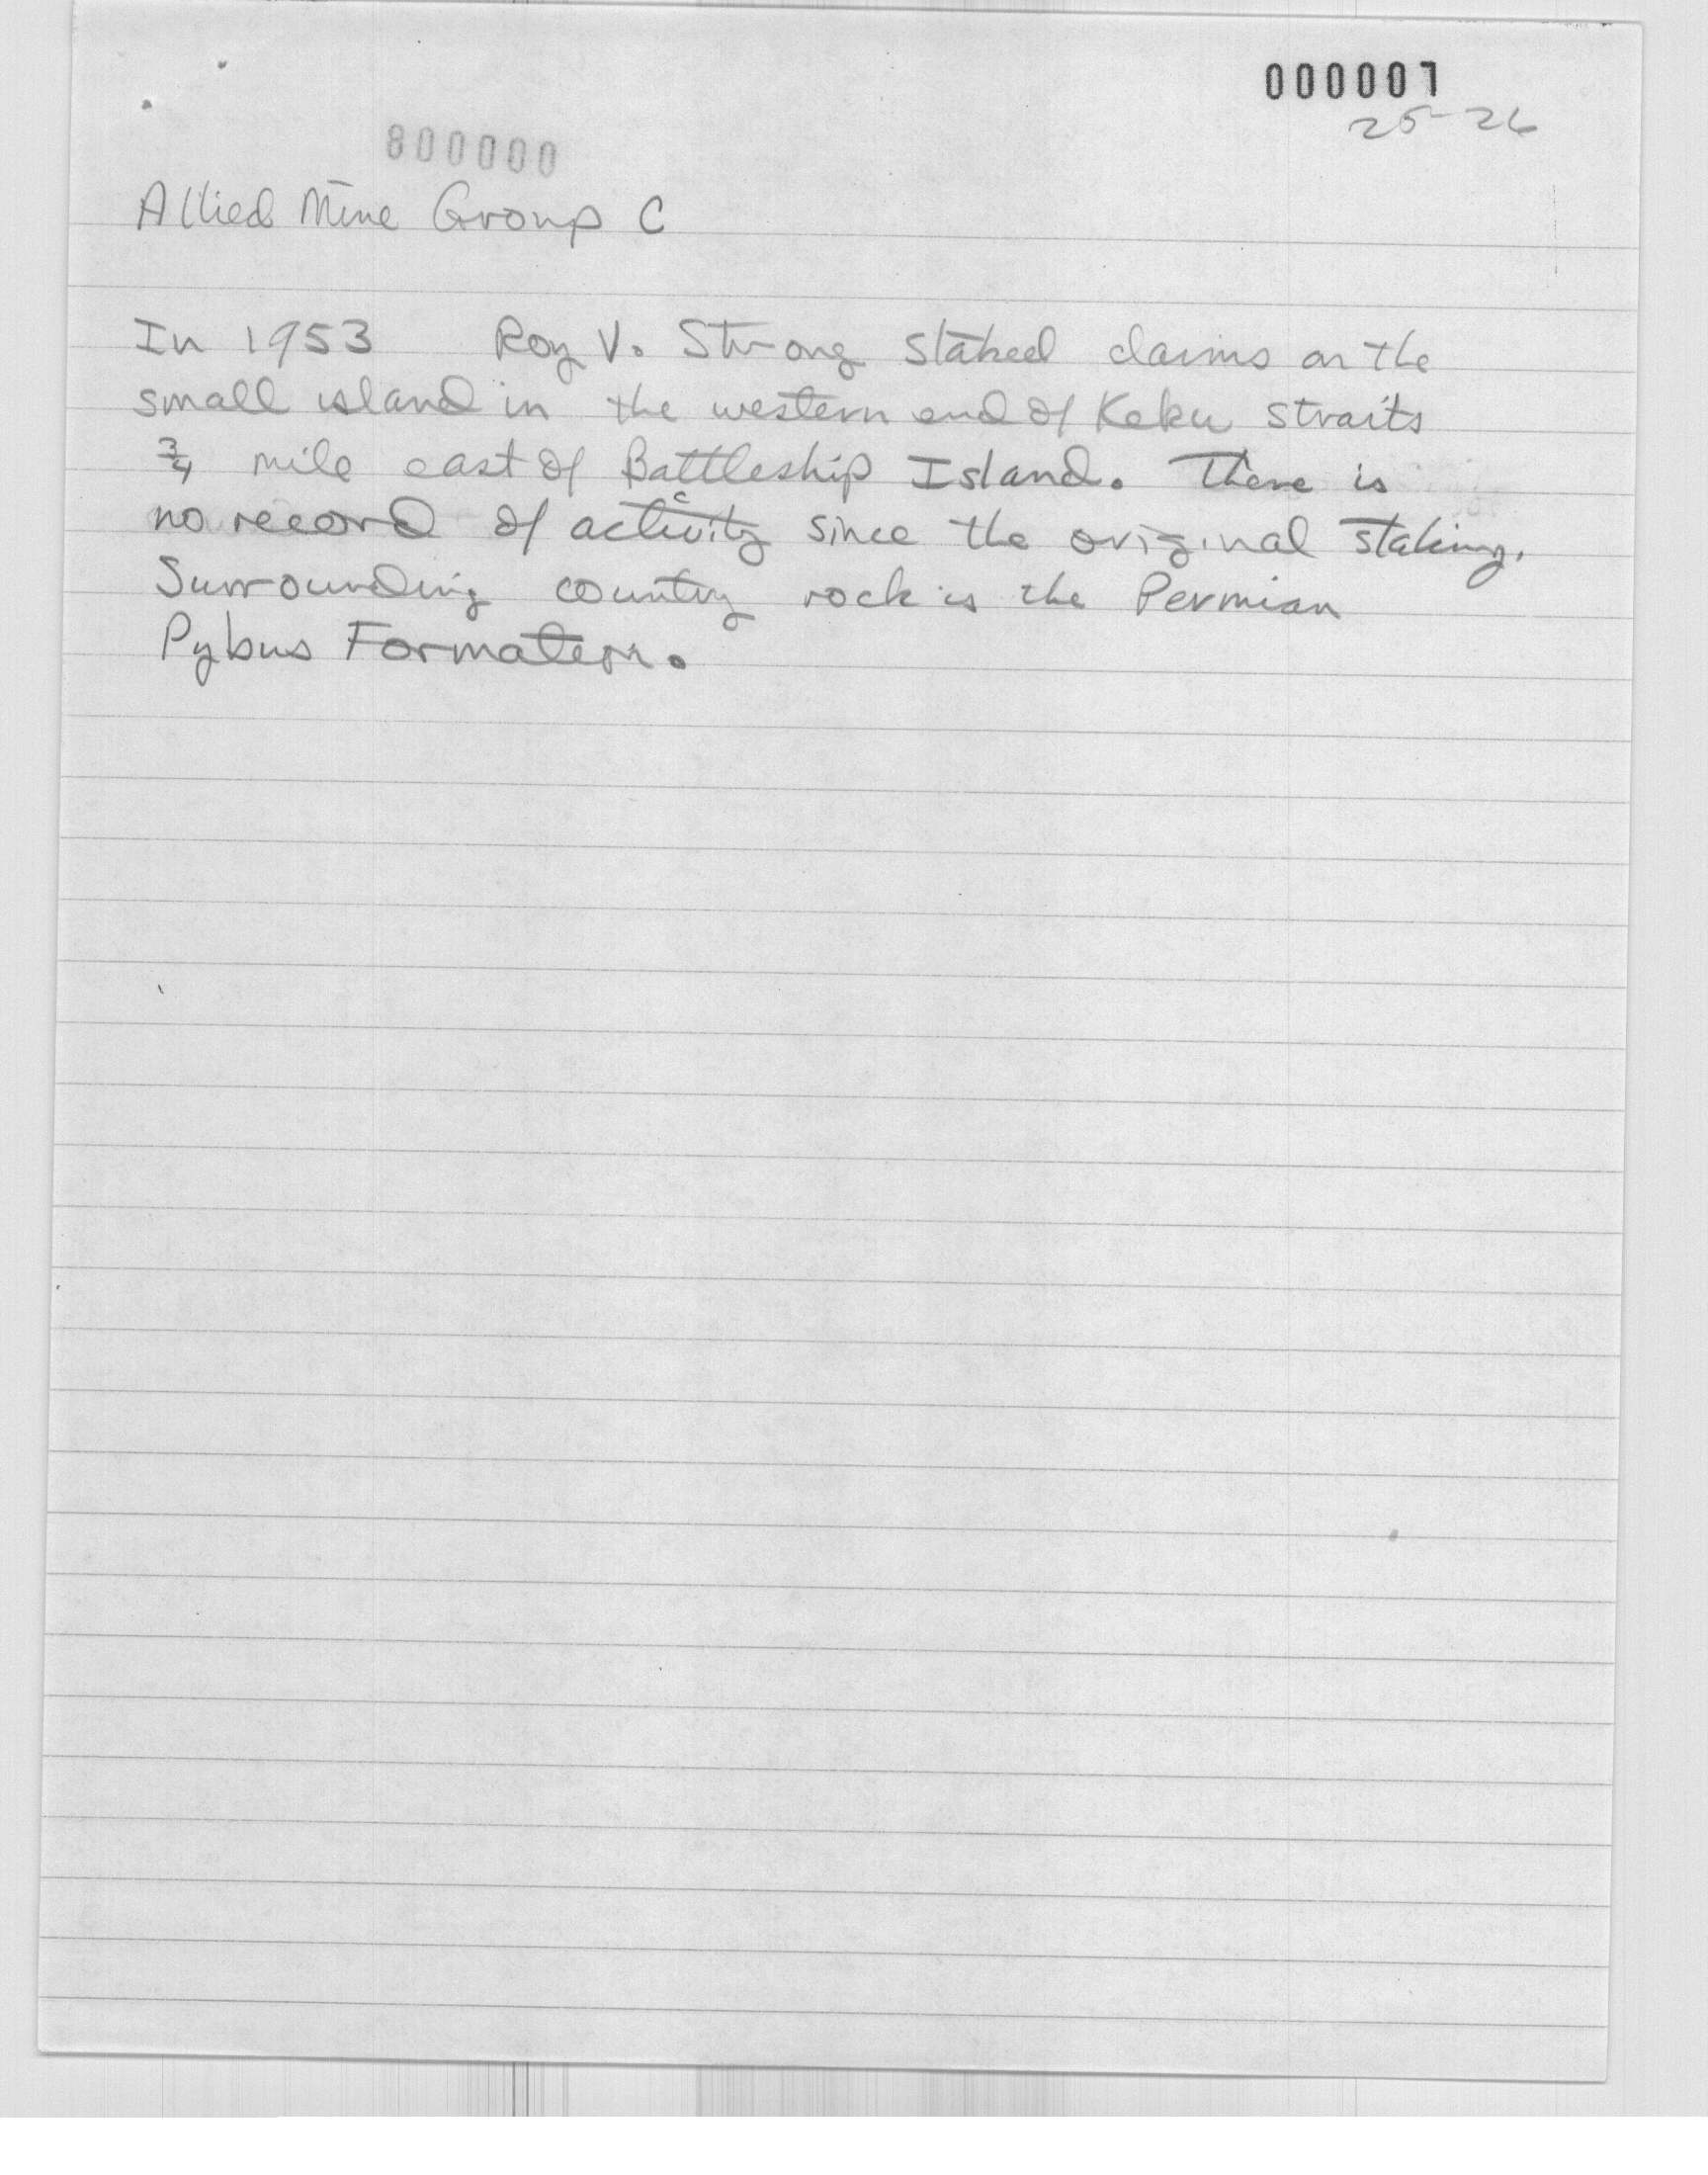 000001
25-26
800000
Allied Mine Group C
In 1953 Roy V. Strong staked claims on the
small island in the western end of Keku Straits
3/4 mile east of Battleship Island. There is
no record of activity since the original staking.
Surrounding country rock is the Permian
Pybus Formation.